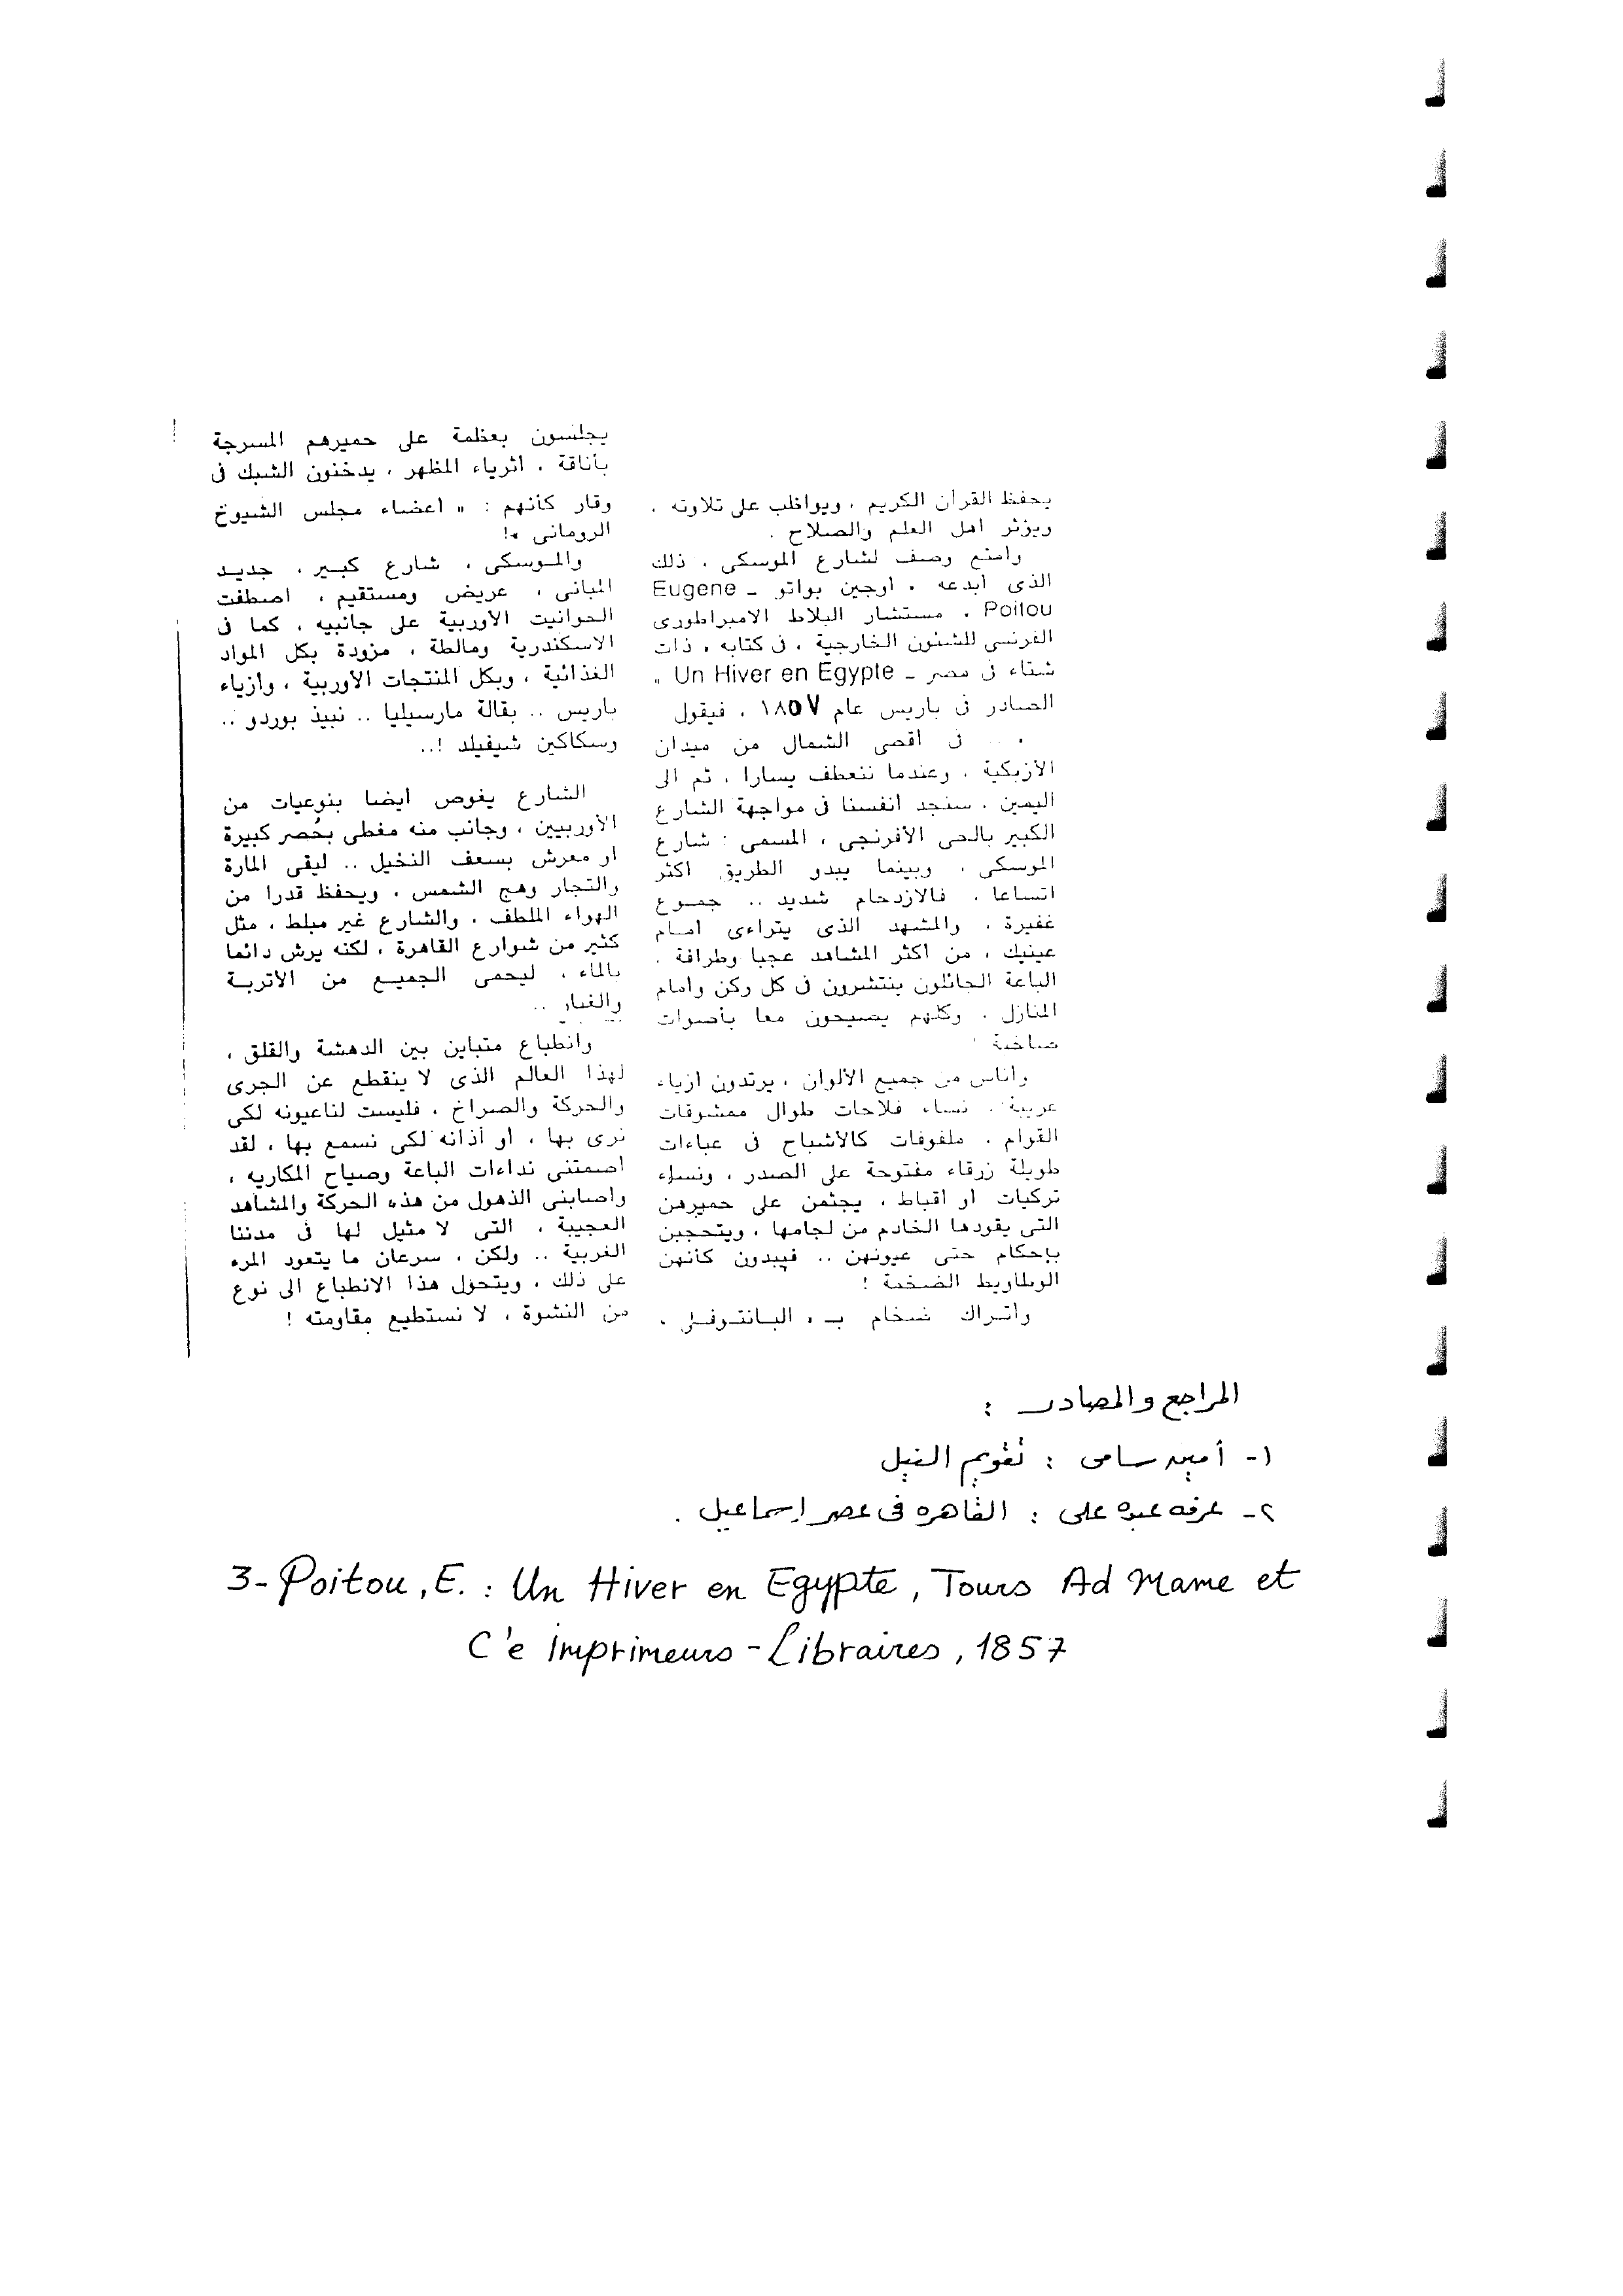 يحفظ القرآن الكريم ، ويواظب على تلاوته .
ويؤثر أهل العلم والصلاح .
وامتع وصف لشارع الموسكى ، ذلك
الذى ابدعه ، اوجين بواتو ـ Eugene
Poitou ، مستشار البلاط الامبراطورى
الفرنسى للشئون الخارجية ، فى كتابه ، ذات
شتاء فى مصر ـ Un Hiver en Egypte »
الصادر فى باريس عام ١٨٥٧ ، فيقول
.. فى أقصى الشمال من ميدان
الأزبكية ، وعندما ننعطف يسارا ، ثم الى
اليمين ، سنجد انفسنا فى مواجهة الشارع
الكبير بالحى الأفرنجى ، المسمى : شارع
الموسكى ، وبينما يبدو الطريق اكثر
اتساعا ، فالازدحام شديد .. جموع
غفيرة ، والمشهد الذى يتراءى امام
عينيك ، من اكثر المشاهد عجبا وطرافة .
الباعة الجائلون ينتشرون فى كل ركن وأمام
المنازل ، وكلهم يصيحون معا بأصوات
صاخبة
وأناس من جميع الألوان ، يرتدون ازياء
عربية . نساء فلاحات طوال ممشوقات
القوام ، ملفوفات كالأشباح فى عباءات
طويلة زرقاء مفتوحة على الصدر ، ونساء
تركيات او اقباط ، يجثمن على حميرهن
التى يقودها الخادم من لجامها ، ويتحجبن
بإحكام حتى عيونهن .. فيبدون كأنهن
الوطاويط الضخمة !
واتراك ضخام بـ ، البانتوفلى ،
يجلسون بعظمة على حميرهم المسرجة
بأناقة ، اثرياء المظهر ، يدخنون الشبك فى
وقار كأنهم : « اعضاء مجلس الشيوخ
الرومانى »!
والموسكى ، شارع كبير ، جديد
المبانى ، عريض ومستقيم ، اصطفت
الحوانيت الأوربية على جانبيه ، كما فى
الاسكندرية ومالطة ، مزودة بكل المواد
الغذائية ، وبكل المنتجات الأوربية ، وأزياء
باريس .. بقالة مارسيليا .. نبيذ بوردو ..
وسكاكين شيفيلد !..
الشارع يغوص ايضا بنوعيات من
الأوربيين ، وجانب منه مغطى بحُصر كبيرة
او معرش بسعف النخيل .. ليقى المارة
والتجار وهج الشمس ، ويحفظ قدرا من
الهواء الملطف ، والشارع غير مبلط ، مثل
كثير من شوارع القاهرة ، لكنه يرش دائما
بالماء ، ليحمى الجميع من الأتربة
والغبار ..
وانطباع متباين بين الدهشة والقلق ،
لهذا العالم الذى لا ينقطع عن الجرى
والحركة والصراخ ، فليست لنا عيونه لكى
نرى بها ، او آذانه لكى نسمع بها ، لقد
اصمتنى نداءات الباعة وصياح المكاريه ،
واصابنى الذهول من هذه الحركة والمشاهد
العجيبة ، التى لا مثيل لها فى مدننا
الغربية .. ولكن ، سرعان ما يتعود المرء
على ذلك ، ويتحول هذا الانطباع الى نوع
من النشوة ، لا نستطيع مقاومته !
المراجع والمصادر :
١- أمين سامى : تقويم النيل
٢- عرفه عبده على : القاهره فى عصر إسماعيل .
3- Poitou, E. : Un Hiver en Egypte, Tours Ad Mame et
C'e imprimeurs - Libraires, 1857